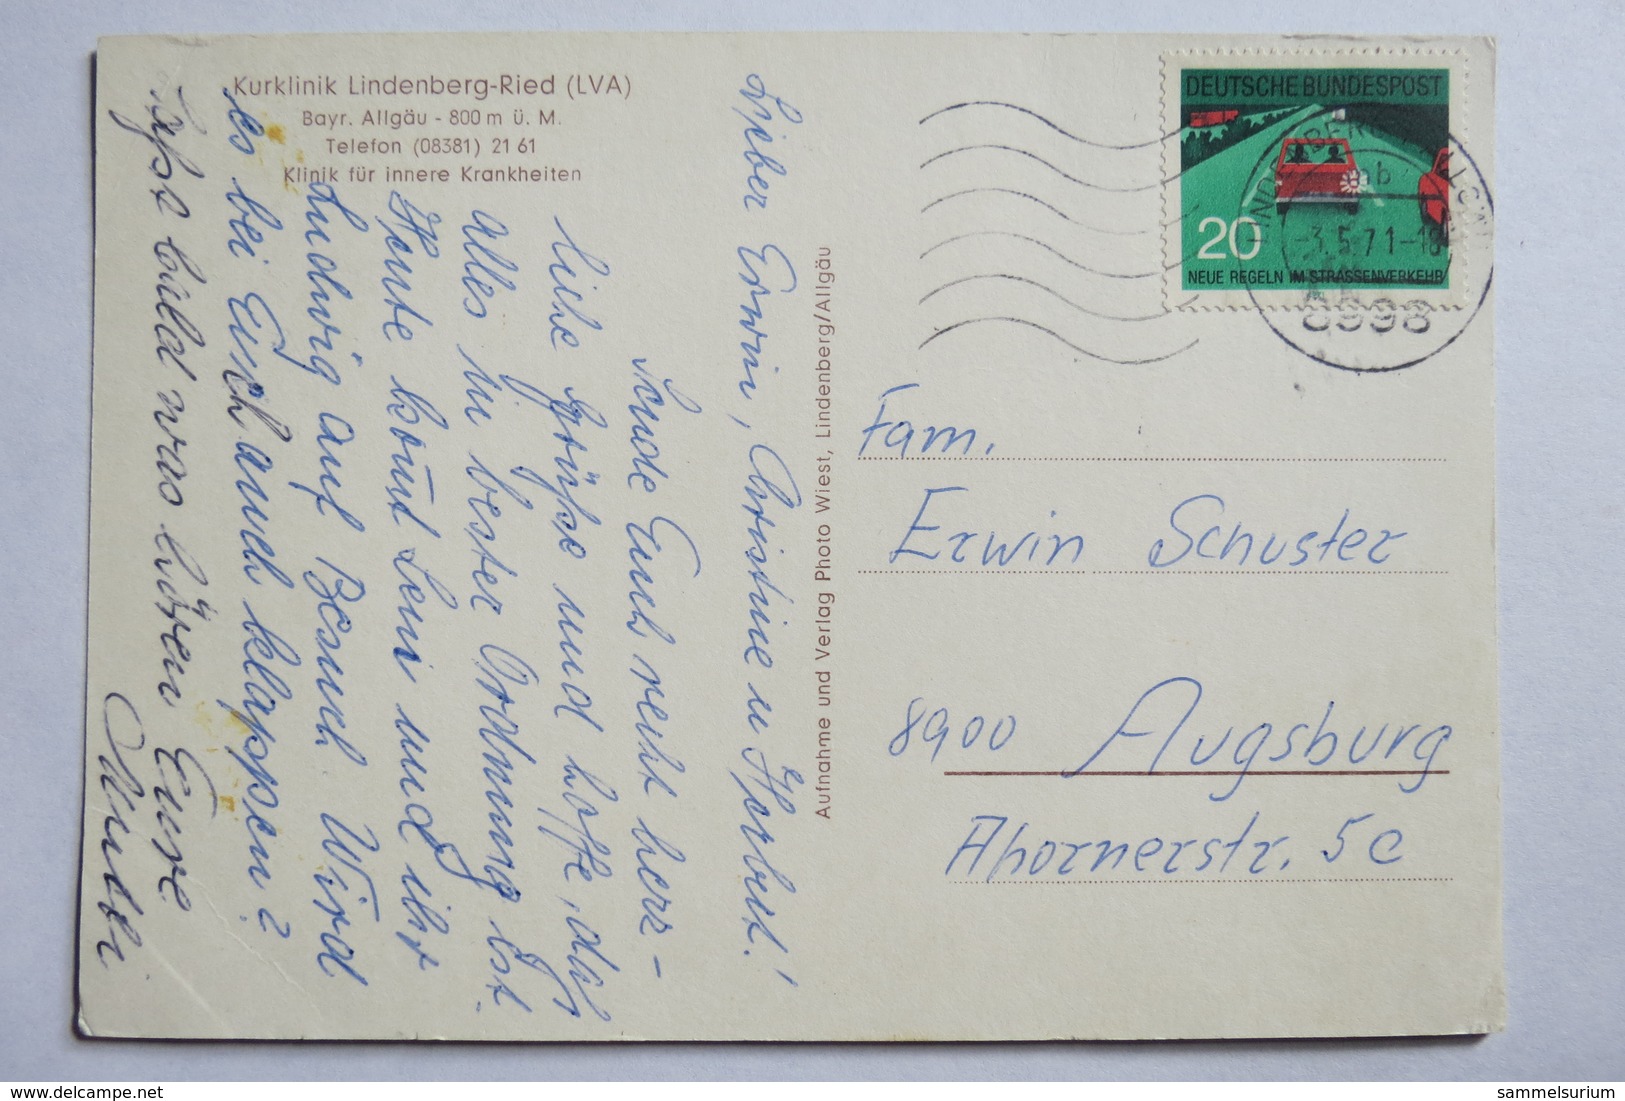 Kurklinik Lindenberg-Ried (LVA)
Bayr. Allgäu - 800 m ü. M.
Telefon (08381) 21 61
Klinik für innere Krankheiten
Lieber Erwin, Christine u Herbert!
Sende Euch recht herz-
liche Grüße und hoffe, daß
alles in bester Ordnung ist.
Heute kom̄t Leni und ihr
Ludwig auf Besuch. Wird
es bei Euch auch klappen?
Laßt bald was hören Eure
Aufnahme und Verlag Photo Wiest, Lindenberg/Allgäu
DEUTSCHE BUNDESPOST
20
NEUE REGELN IM STRASSENVERKEHR
LINDENBERG
ab
-3.5.71-18
8998
Fam.
Erwin Schuster
8900 Augsburg
Ahornerstr. 5c
sammelsurium
delcampe.net